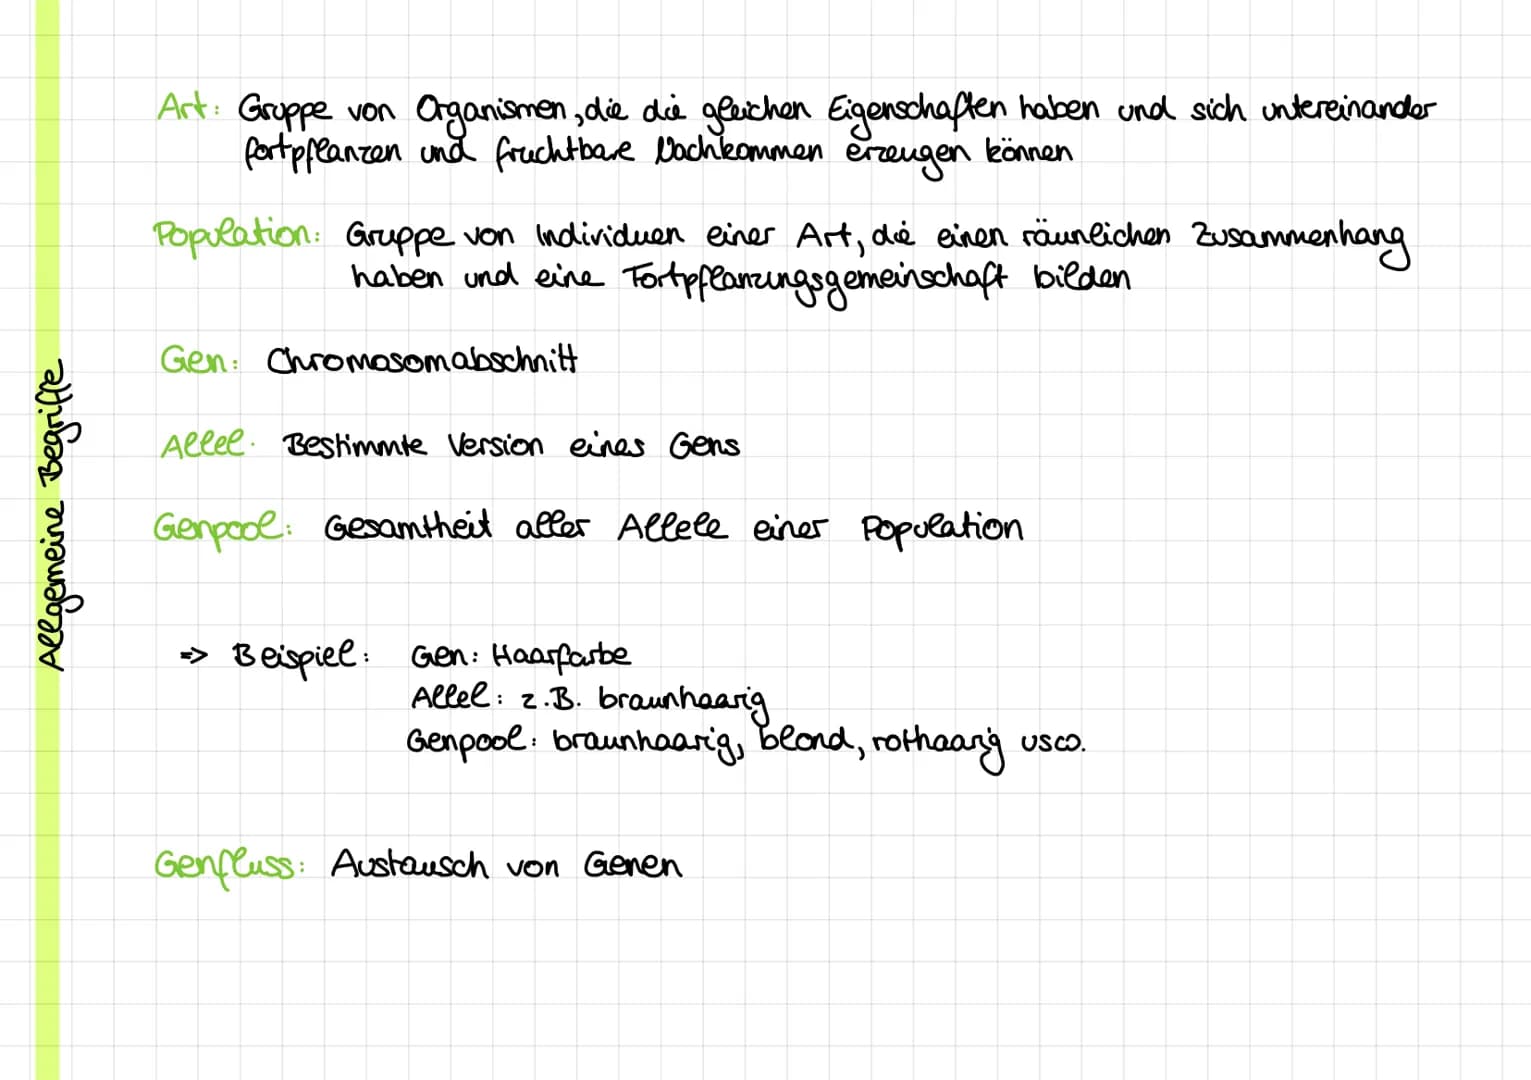 Allgemeine Begriffe
Art: Gruppe von Organismen, die die gleichen Eigenschaften haben und sich untereinander
fortpflanzen und fruchtbare Nachkommen erzeugen können
Population: Gruppe von Individuen einer Art, die einen räumlichen Zusammenhang
haben und eine Fortpflanzungsgemeinschaft bilden
Gen: Chromosomabschnitt
Allel: Bestimmte Version eines Gens
Genpool: Gesamtheit aller Allele einer Population
=> Beispiel: Gen: Haarfarbe
Allel: z.B. braunhaarig
Genpool: braunhaarig, blond, rothaarig usw.
Genfluss: Austausch von Genen